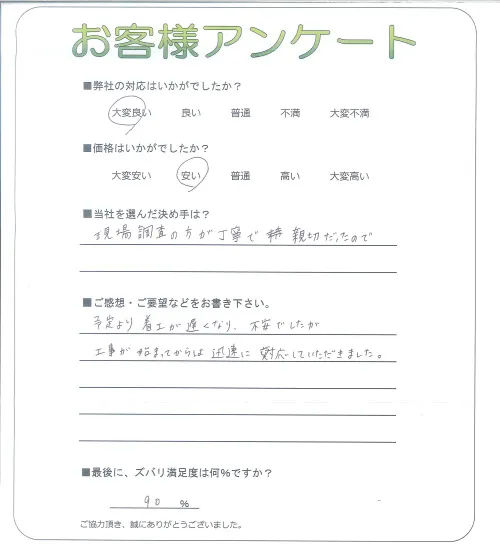 お客様アンケート
■弊社の対応はいかがでしたか？
大変良い 良い 普通 不満 大変不満
■価格はいかがでしたか？
大変安い 安い 普通 高い 大変高い
■当社を選んだ決め手は？
現場調査の方が丁寧で 親切だったので
■ご感想・ご要望などをお書き下さい。
予定より着工が遅くなり、不安でしたが
工事が始まってからは迅速に対応していただきました。
■最後に、ズバリ満足度は何％ですか？
90 %
ご協力頂き、誠にありがとうございました。